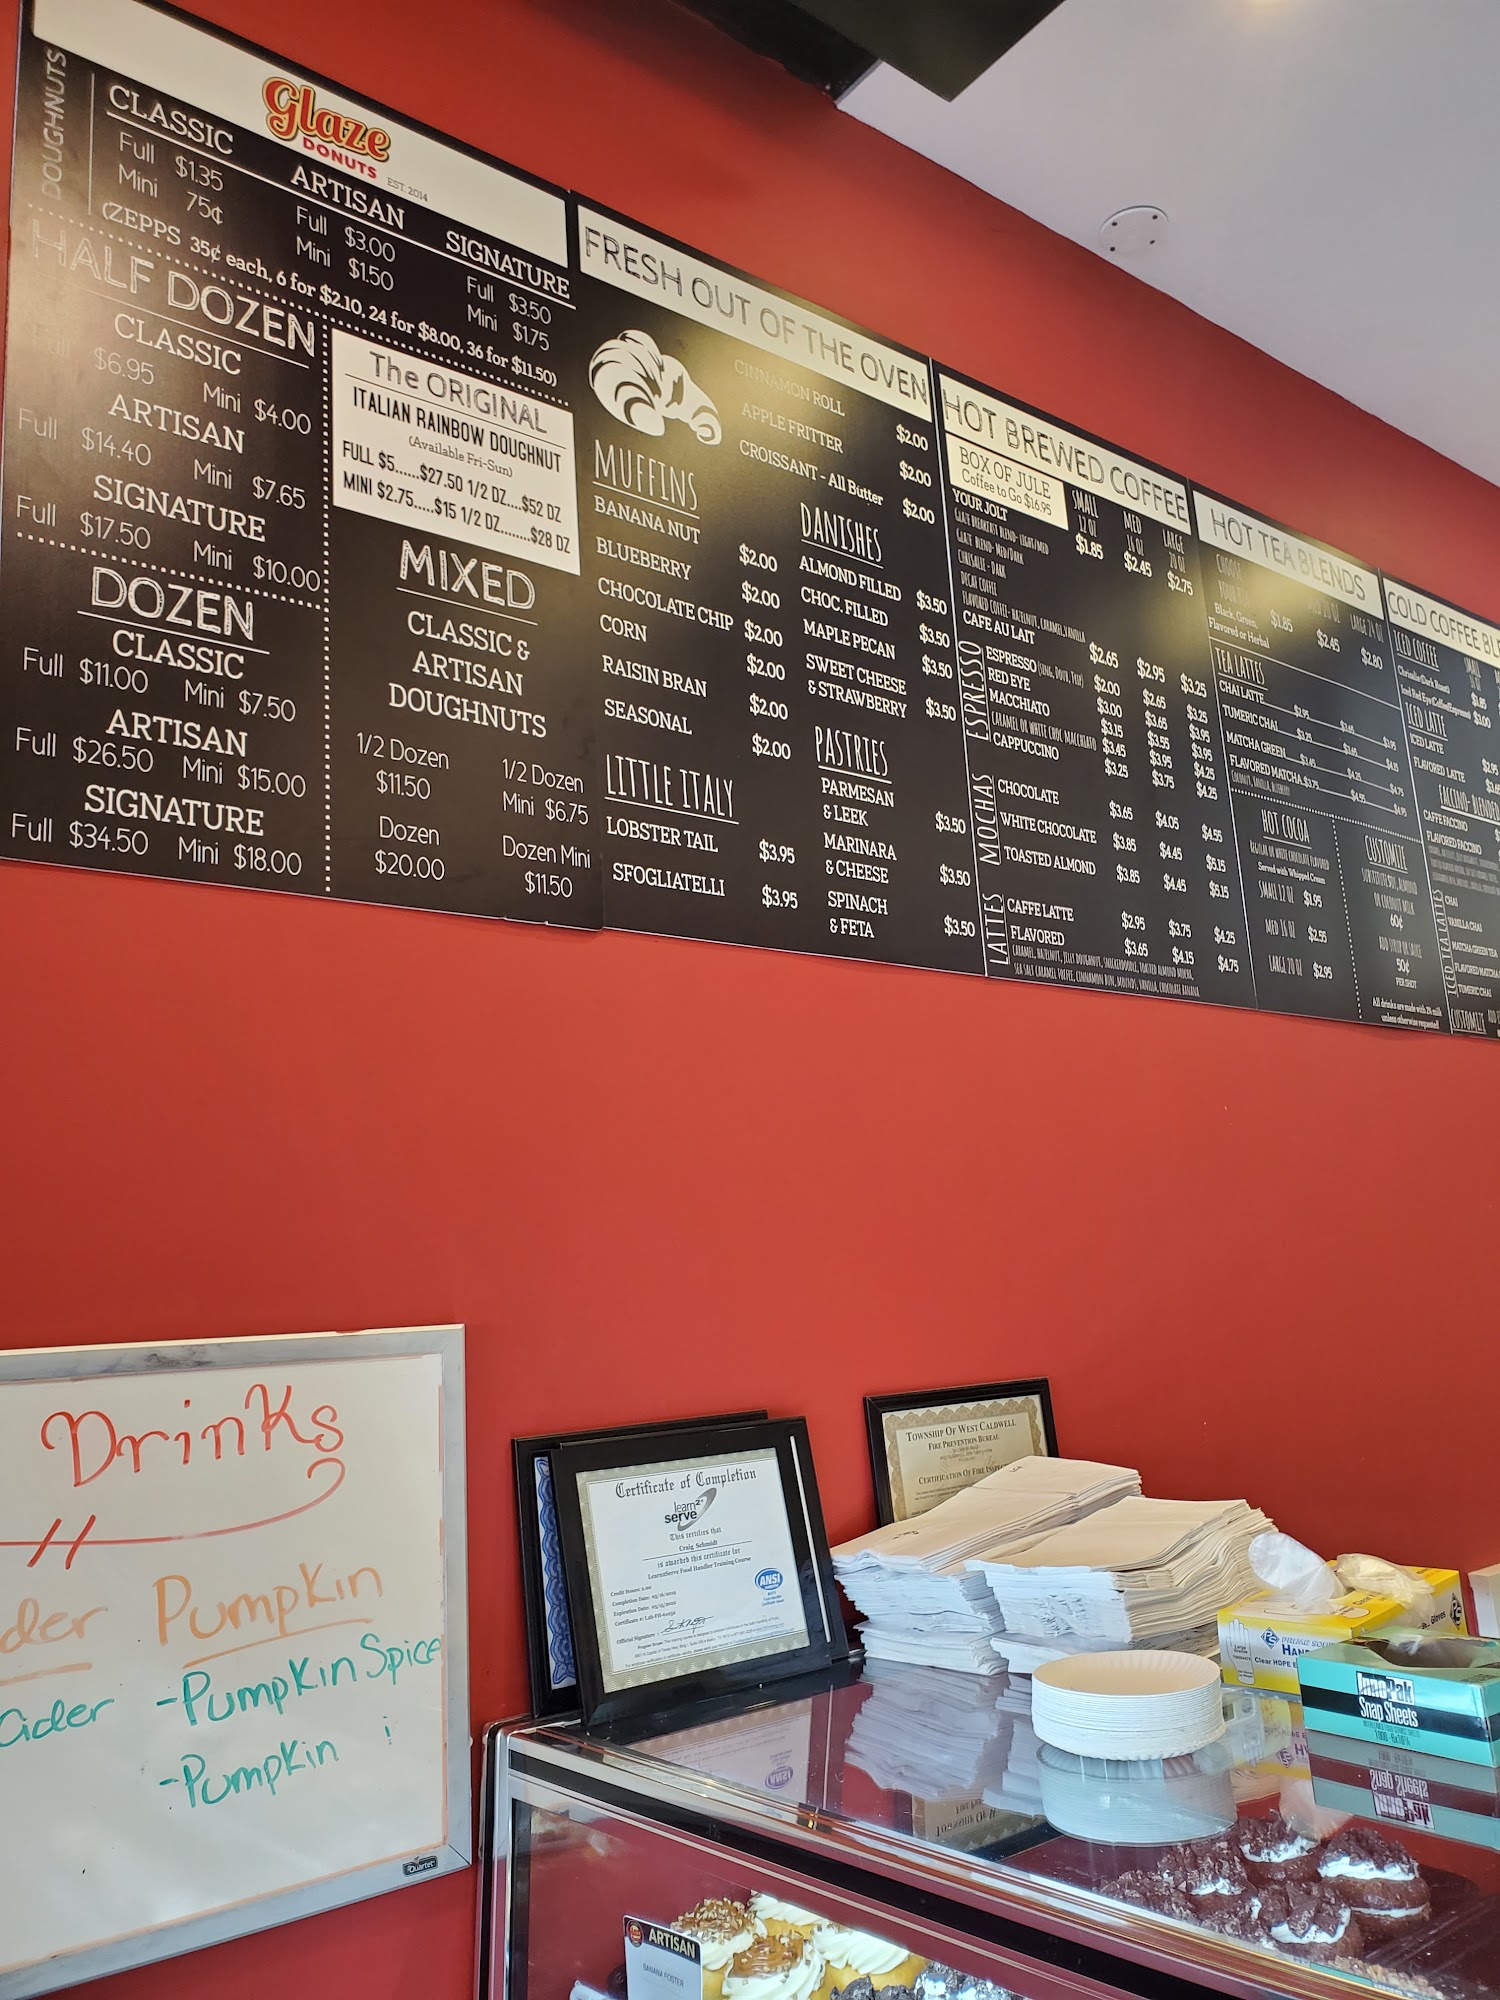 DOUGHNUTS
Glaze
DONUTS
EST. 2014
CLASSIC
Full $1.35
Mini 75¢
ARTISAN
Full $3.00
Mini $1.50
SIGNATURE
Full $3.50
Mini $1.75
(ZEPPS 35¢ each, 6 for $2.10, 24 for $8.00, 36 for $11.50)
HALF DOZEN
CLASSIC
Full $6.95 Mini $4.00
ARTISAN
Full $14.40 Mini $7.65
SIGNATURE
Full $17.50 Mini $10.00
DOZEN
CLASSIC
Full $11.00 Mini $7.50
ARTISAN
Full $26.50 Mini $15.00
SIGNATURE
Full $34.50 Mini $18.00
The ORIGINAL
ITALIAN RAINBOW DOUGHNUT
(Available Fri-Sun)
FULL $5.....$27.50 1/2 DZ....$52 DZ
MINI $2.75.....$15 1/2 DZ........$28 DZ
MIXED
CLASSIC &
ARTISAN
DOUGHNUTS
1/2 Dozen
$11.50
1/2 Dozen
Mini $6.75
Dozen
$20.00
Dozen Mini
$11.50
FRESH OUT OF THE OVEN
CINNAMON ROLL $2.00
APPLE FRITTER $2.00
CROISSANT - All Butter $2.00
MUFFINS
BANANA NUT $2.00
BLUEBERRY $2.00
CHOCOLATE CHIP $2.00
CORN $2.00
RAISIN BRAN $2.00
SEASONAL $2.00
LITTLE ITALY
LOBSTER TAIL $3.95
SFOGLIATELLI $3.95
DANISHES
ALMOND FILLED $3.50
CHOC. FILLED $3.50
MAPLE PECAN $3.50
SWEET CHEESE
& STRAWBERRY $3.50
PASTRIES
PARMESAN
& LEEK $3.50
MARINARA
& CHEESE $3.50
SPINACH
& FETA $3.50
HOT BREWED COFFEE
BOX OF JULE
Coffee to Go $16.95
SMALL MED LARGE
12 OZ 16 OZ 20 OZ
YOUR JOLT $1.85 $2.45 $2.75
GLAZE BREAKFAST BLEND- LIGHT/MED
GLAZE BLEND- MED/DARK
CHRISALIE - DARK
DECAF COFFEE
FLAVORED COFFEE- HAZELNUT, CARAMEL, VANILLA
CAFE AU LAIT $2.65 $2.95 $3.25
ESPRESSO
ESPRESSO (SING, DOUB, TRIP) $2.00 $2.65 $3.25
RED EYE $3.00 $3.65 $3.95
MACCHIATO $3.15 $3.55 $3.95
CARAMEL OR WHITE CHOC MACCHIATO $3.45 $3.95 $4.25
CAPPUCCINO $3.25 $3.75 $4.25
MOCHAS
CHOCOLATE $3.65 $4.05 $4.55
WHITE CHOCOLATE $3.85 $4.45 $5.15
TOASTED ALMOND $3.85 $4.45 $5.15
LATTES
CAFFE LATTE $2.95 $3.75 $4.25
FLAVORED $3.65 $4.15 $4.75
CARAMEL, HAZELNUT, JELLY DOUGHNUT, SNICKERDOODLE, TOASTED ALMOND MOCHA,
SEA SALT CARAMEL TOFFEE, CINNAMON BUN, MOUNDS, VANILLA, CHOCOLATE BANANA
HOT TEA BLENDS
CHOOSE
YOUR TEA
Black, Green,
Flavored or Herbal
LARGE 24 OZ
$1.85 $2.45 $2.80
TEA LATTES
CHAI LATTE $2.95 $3.65 $3.95
TUMERIC CHAI $3.25 $3.65 $4.15
MATCHA GREEN $3.45 $4.25 $4.75
FLAVORED MATCHA $3.75 $4.55 $4.95
COCONUT, VANILLA, BLUEBERRY
HOT COCOA
REGULAR OR WHITE CHOCOLATE FLAVORED
Served with Whipped Cream
SMALL 12 OZ $1.95
MED 16 OZ $2.55
LARGE 20 OZ $2.95
CUSTOMIZE
SUBSTITUTE SOY, ALMOND
OR COCONUT MILK
60¢
ADD SYRUP OR SAUCE
50¢
PER SHOT
All drinks are made with 2% milk
unless otherwise requested!
COLD COFFEE BLE
ICED COFFEE
Chrisalie (Dark Roast)
Iced Red Eye (Coffee/Espresso) $3.00
ICED LATTE
ICED LATTE $2.95
FLAVORED LATTE
FACCINO- BLENDED
CAFFE FACCINO
FLAVORED FACCINO
ICED TEA LATTES
CHAI
VANILLA CHAI
MATCHA GREEN TEA
FLAVORED MATCHA
TUMERIC CHAI
CUSTOMIZE
Drinks
der Pumpkin
Cider -Pumpkin Spice
-Pumpkin
Quartet
Certificate of Completion
learn2serve
This certifies that
Craig Schmidt
is awarded this certificate for
Learn2Serve Food Handler Training Course
ANSI
Official Signature
TOWNSHIP OF WEST CALDWELL
FIRE PREVENTION BUREAU
CERTIFICATION OF FIRE INSPE
HAN
Clear HDPE
Gloves
InnoPak
Snap Sheets
ARTISAN
BANANA FOSTER